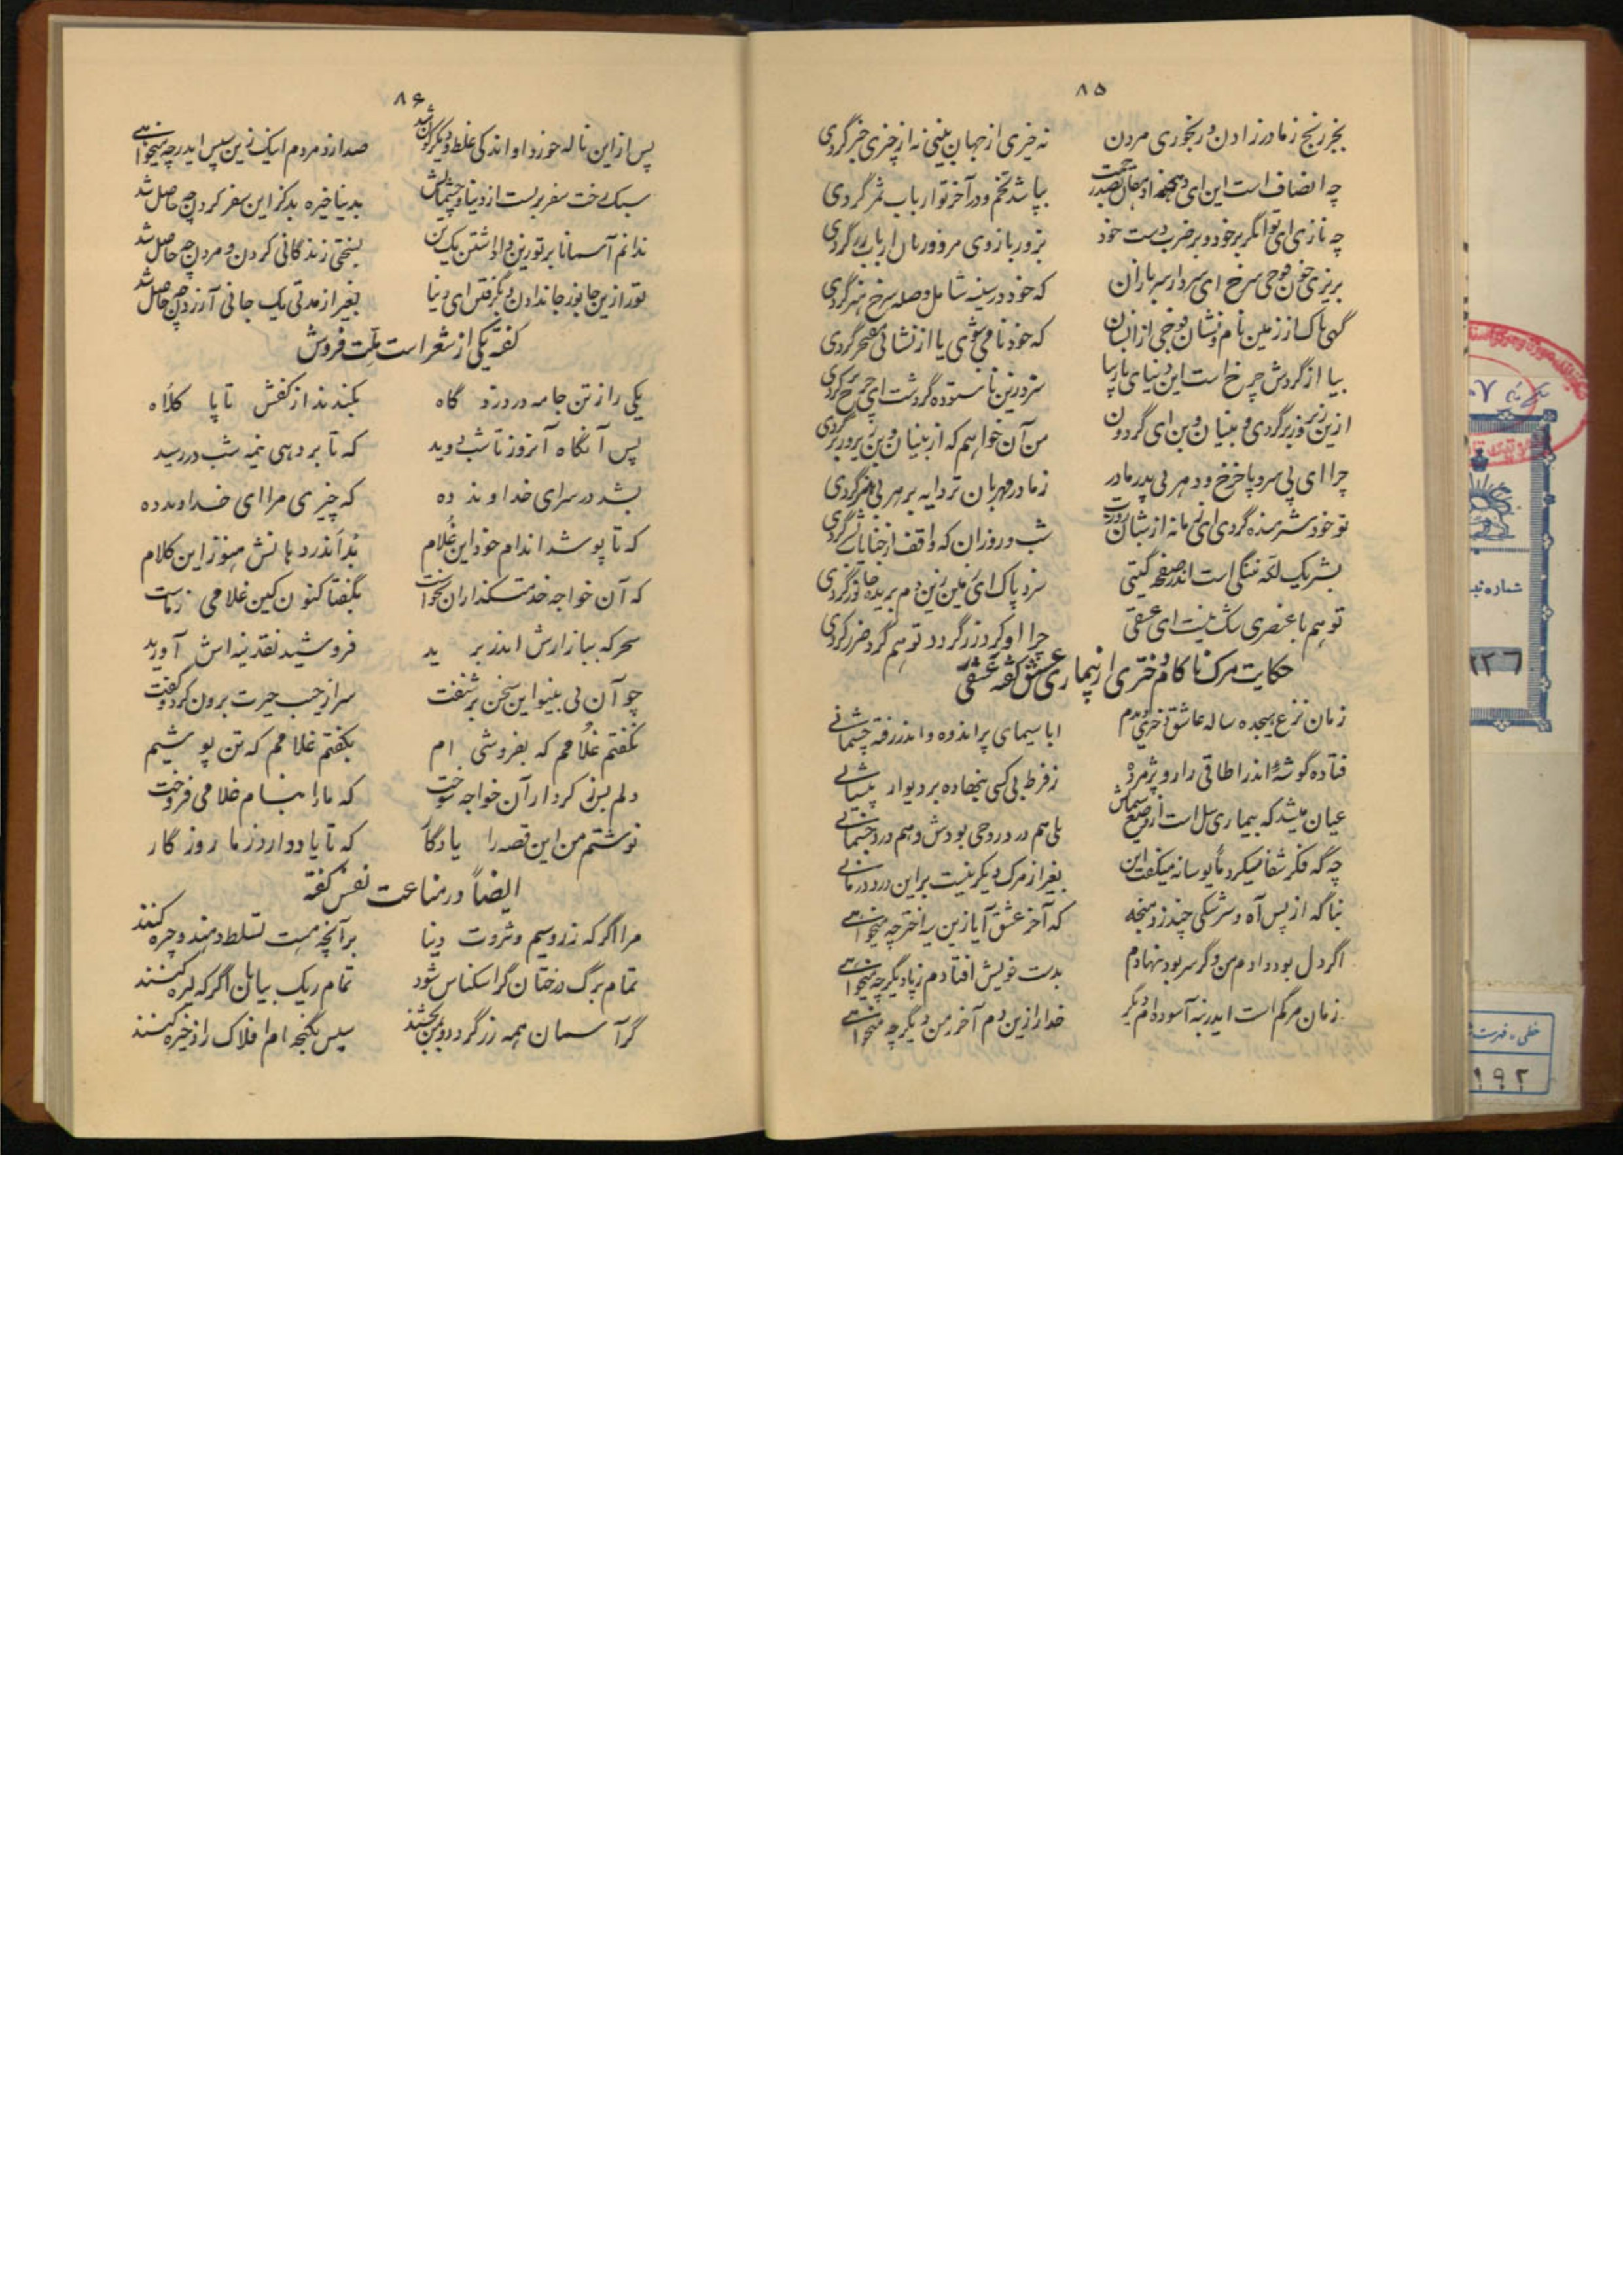 ۸۵
بجز رنج ز مادر زادن و رنجوری مردن نه خیری از جهان بینی نه از چیزی خبر گردی
چه انصاف است این ای بپاشد تخم و در آخر تو ارباب ثمر گردی
چه نازی ای توانگر بر خود و بر ضرب دست خود بزور بازوی مزدور مال ارباب زر گردی
بریزی خون فوجی سرخ ای سردار سربازان که خود در سینه شامل وصله سرخ هنر گردی
کنی پاک از زمین نام و نشان فوجی از انسان که خود نامی شوی یا از نشانی مفتخر گردی
بیا از گردش چرخ است این دنیای نارسا سزد زین ناستوده گردشت ای چرخ برگردی
ازین زیر و زبر گردی و بنیان و بن ای گردون من آن خواهم که از بنیان و بن زیر و زبر گردی
چرا ای بی سر و پا چرخ دون مهر بی پدر مادر ز مادر مهربان تر دایه بر هر بی هنر گردی
تو خود شرمنده گردی ای زمانه از شبان روزت شب و روز ار که واقف از جنایات بشر گردی
بشر یک لکه ننگی است اندر صفحه گیتی سزد پاک ای زمین زین دم بریده جانور گردی
تو هم با عنصری سگ نیست ای عشقی چرا او گرد زر گردد تو هم گرد ضرر گردی
حکایت مرگ ناکام دختری از بیماری عشق گفته عشقی
زمان نزع هیجده ساله عاشق دختری دیدم ابا سیمای پر اندوه و اندر رفته چشمانی
فتاده گوشهٔ اندر اطاقی زار و پژمرده ز فرط بی کسی بنهاده بر دیوار پیشانی
عیان میشد که بیماری سل است از وضع سیمایش بلی هم درد روحی بودش و هم درد جسمانی
چه گه فکر شفا میکرد مأیوسانه میگفت این بغیر از مرگ دیگر نیست بر این درد درمانی
بناگه از پس آه و سرشکی چند زد پنجه که آخر عشق آیا زین سیه اختر چه میخواهی
اگر دل بود دادم من و گر سر بود بنهادم بدست خویش افتادم ز پا دیگر چه میخواهی
زمان مرگم است ایدر بنه آسوده ام دیگر خدا را زین دم آخر ز من دیگر چه میخواهی
۸۶
پس از این ناله خورد او اندکی غلط و دیگرگون شد صدا زد مردم اینک زین سپس ایدر چه میخواهی
سبک رخت سفر بربست از دنیا و چشمانش بدنیا خیره بد کز این سفر کردن چه حاصل شد
ندانم آسمانا بر تو زین واداشتن یک تن بسختی زندگانی کردن و مردن چه حاصل شد
تو را زین جانور جاندادن و بگرفتن ای دنیا بغیر از مدتی یک جانی آزردن چه حاصل شد
گفته یکی از شعر است ملت فروش
یکی را ز تن جامه در دزد گاه بکندند از کفش تا پا کلاه
پس آنگاه آنروز تا شب دوید که تا بر دهی نیمه شب در رسید
بشد در سرای خداوند ده که چیزی مرا ای خداوند ده
که تا پوشد اندام خود این غلام بد اندر دهانش هنوز این کلام
که آن خواجه خدمتگذاران بخواست بگفتا کنون کین غلامی ز ماست
سحرگه ببازارش اندر برید فروشید نقدینه اش آورید
چو آن بی نوا این سخن بر شنفت سر از جیب حیرت برون کرد و گفت
نگفتم غلامم که بفروشی ام بگفتم غلامم که تن پوشیم
دلم بس ز کردار آن خواجه سوخت که ما را بنام غلامی فروخت
نوشتم من این قصه را یادگار که تا یاد دارد ز ما روزگار
ایضاً در مناعت نفس گفته
مرا اگر که زر و سیم و ثروت دنیا بر آنچه هست تسلط دهند و چیره کنند
تمام برگ درختان گر اسکناس شود تمام ریگ بیابان اگر که لیره کنند
گر آسمان همه زر گردد و بمن بخشند سپس بگنجه ام افلاک را ذخیره کنند
شماره ثبت
۱۹۲